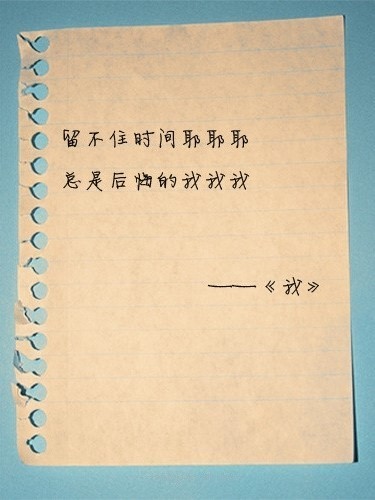 留不住时间耶耶耶
总是后悔的我我我
——《我》